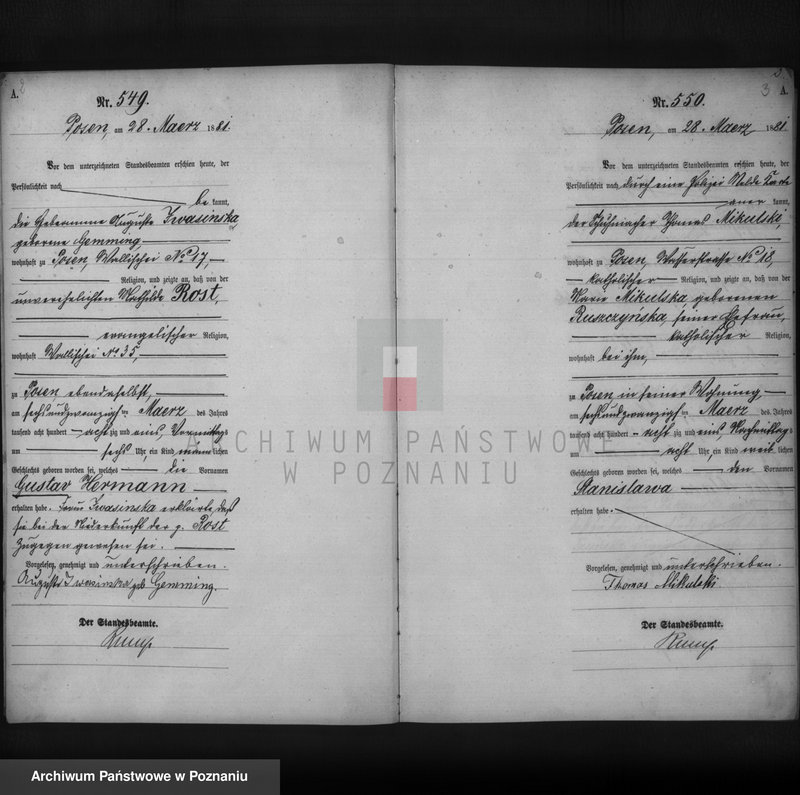 A.
Nr. 549.
Posen, am 28. Maerz 1881.
Vor dem unterzeichneten Standesbeamten erschien heute, der
Persönlichkeit nach
be kannt,
die Hebeamme Auguste Iwasinska
geborene Gemming
wohnhaft zu Posen, Wallischei No 17,
Religion, und zeigte an, daß von der
unverehelichten Mathilde Rost,
evangelischer Religion,
wohnhaft Wallischei No 35,
zu Posen ebendaselbst,
am sechsundzwanzigsten Maerz des Jahres
tausend acht hundert achtzig und eins, Vormittags
um sechs Uhr ein Kind männlichen
Geschlechts geboren worden sei, welches die Vornamen
Gustav Hermann
erhalten habe. Frau Iwasinska erklärte, daß
sie bei der Niederkunft der p. Rost
zugegen gewesen sei.
Vorgelesen, genehmigt und unterschrieben.
Auguste Iwasinska geb Gemming.
Der Standesbeamte.
3 A.
Nr. 550.
Posen, am 28. Maerz 1881
Vor dem unterzeichneten Standesbeamten erschien heute, der
Persönlichkeit nach durch eine Polizei Melde Karte
aner kannt,
der Schuhmacher Thomas Mikulski,
wohnhaft zu Posen, Wasserstrasse No 18
katholischer Religion, und zeigte an, daß von der
Marie Mikulska, geborenen
Ruszczyńska, seiner Ehefrau,
katholischer Religion,
wohnhaft bei ihm,
zu Posen in seiner Wohnung,
am sechsundzwanzigsten Maerz des Jahres
tausend acht hundert achtzig und eins, Nachmittags
um acht Uhr ein Kind weiblichen
Geschlechts geboren worden sei, welches den Vornamen
Stanislawa
erhalten habe.
Vorgelesen, genehmigt und unterschrieben.
Thomas Mikulski
Der Standesbeamte.
ARCHIWUM PAŃSTWOWE
W POZNANIU
Archiwum Państwowe w Poznaniu